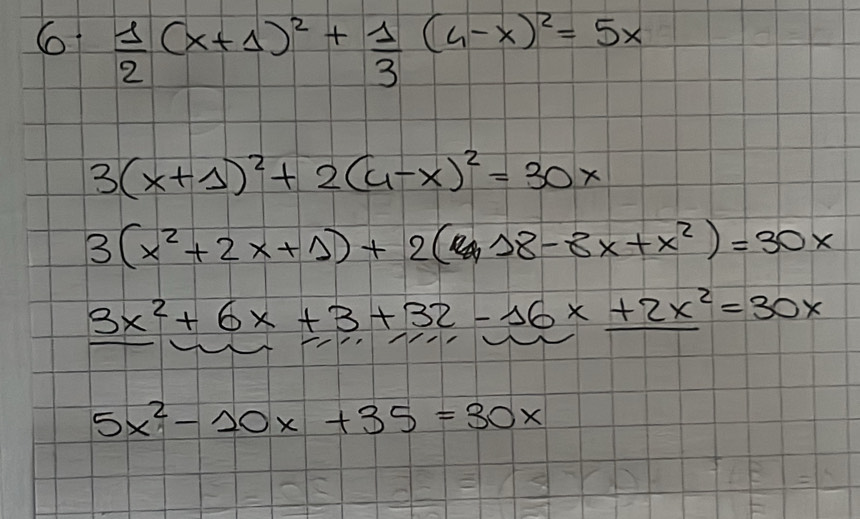 6. 1/2 (x+1)² + 1/3 (4-x)² = 5x
3(x+1)² + 2(4-x)² = 30x
3(x²+2x+1) + 2(18-8x+x²) = 30x
3x² + 6x + 3 + 32 - 16x + 2x² = 30x
5x² - 10x + 35 = 30x